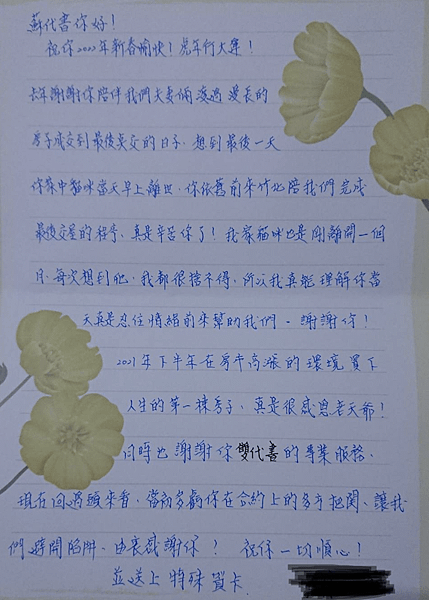 蘇代書你好！
祝你2022年新春愉快！虎年行大運！
去年謝謝你陪伴我們夫妻倆渡過漫長的
房子成交到最後點交的日子，想到最後一天
你家中貓咪當天早上離世，你依舊前來竹北陪我們完成
最後交屋的程序，真是辛苦你了！我家貓咪也是剛離開一個
月，每次想到他，我都很捨不得，所以我真能理解你當
天真是忍住情緒前來幫助我們。謝謝你！
2021年下半年在房市高漲的環境買下
人生的第一棟房子，真是很感恩老天爺！
同時也謝謝你雙代書的專業服務，
現在回過頭來看，當初多虧你在合約上的多方把關、讓我
們時間陷阱，由衷感謝你！ 祝你一切順心！
並送上特殊賀卡